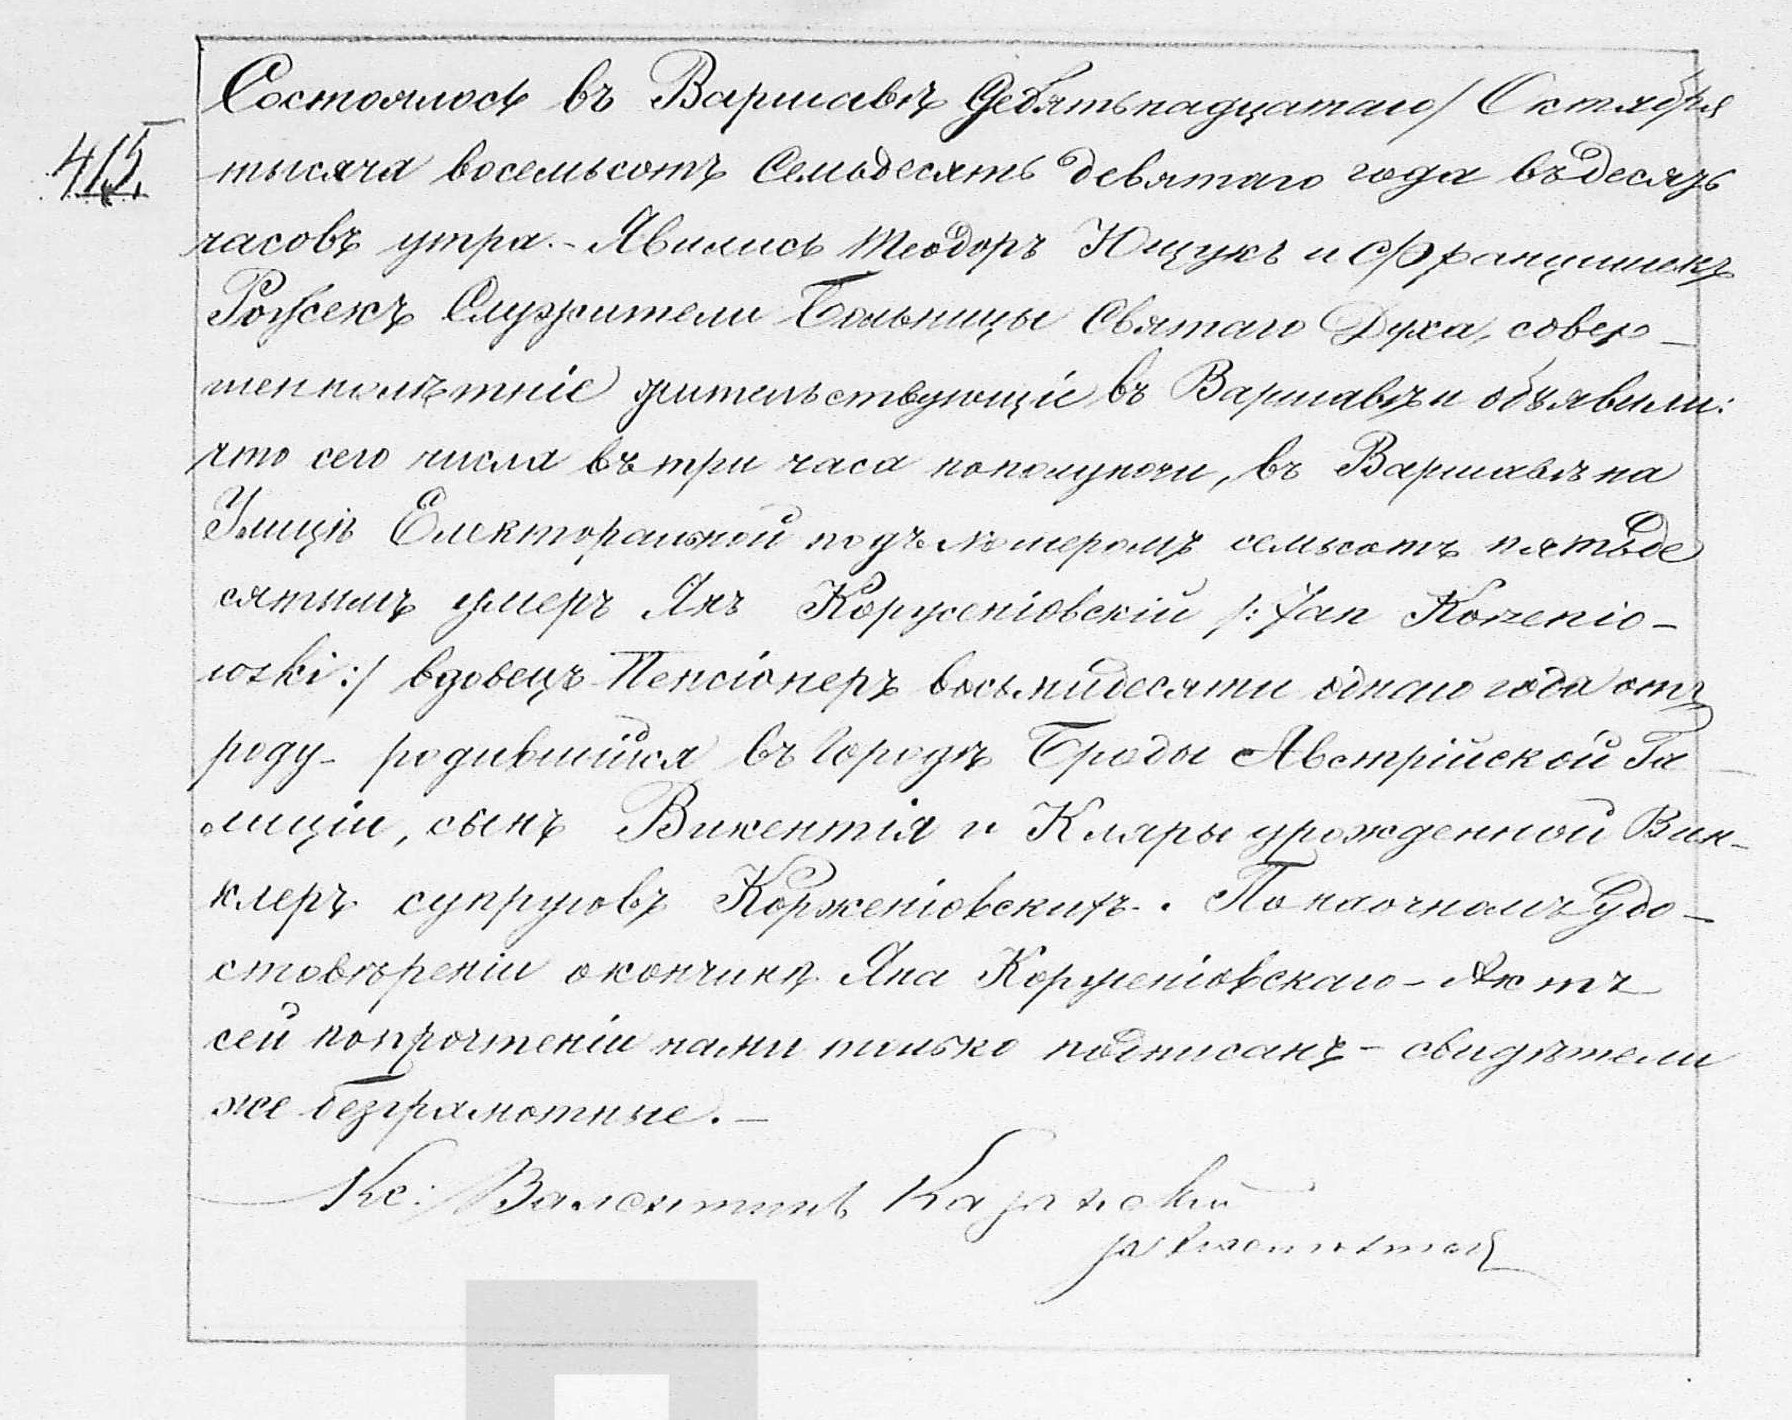 415.
Состоялось въ Варшавѣ Девятьнадцатаго/ Октября
тысяча восемьсотъ Семьдесятъ девятаго года въ десять
часовъ утра.- Явились Теодоръ Ющукъ и Францишекъ
Рожекъ Служители Больницы Святаго Духа, совер-
шеннолѣтніе жительствующіе въ Варшавѣ и объявили:
что сего числа въ три часа пополуночи, въ Варшавѣ на
Улицѣ Електоральной подъ номеромъ семьсотъ пятьде
сятымъ умеръ Янъ Корженіовскій /: Jan Korzenio-
wski:/ вдовецъ Пенсіонеръ восьмидесяти однаго года отъ
роду- родившійся въ Городѣ Броды Австрійской Га
лиціи, сынъ Викентія и Кляры урожденной Вин-
клеръ супруговъ Корженіовскихъ. По наочномъ удо-
стовѣреніи о кончинѣ Яна Корженіовскаго- Актъ
сей по прочтеніи нами только подписанъ- свидѣтели
же безграмотные.-
Кс: Валентинъ